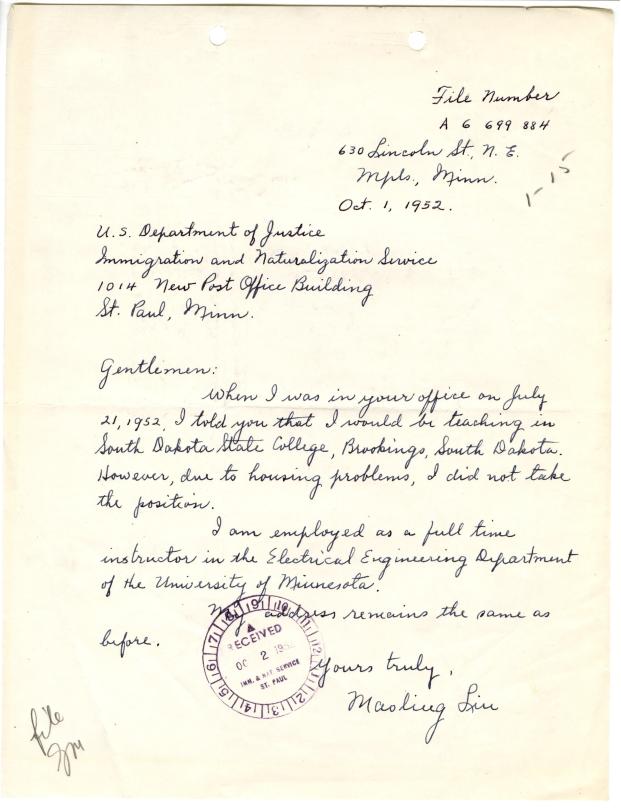 File Number
A 6 699 884
630 Lincoln St., N. E.
Mpls., Minn.
1-15
Oct. 1, 1952.
U.S. Department of Justice
Immigration and Naturalization Service
1014 New Post Office Building
St. Paul, Minn.
Gentlemen:
When I was in your office on July
21, 1952, I told you that I would be teaching in
South Dakota State College, Brookings, South Dakota.
However, due to housing problems, I did not take
the position.
I am employed as a full time
instructor in the Electrical Engineering Department
of the University of Minnesota.
My address remains the same as
before.
RECEIVED
OC 2 195
IMM. & NAT. SERVICE
ST. PAUL
Yours truly,
Maoling Liu
file